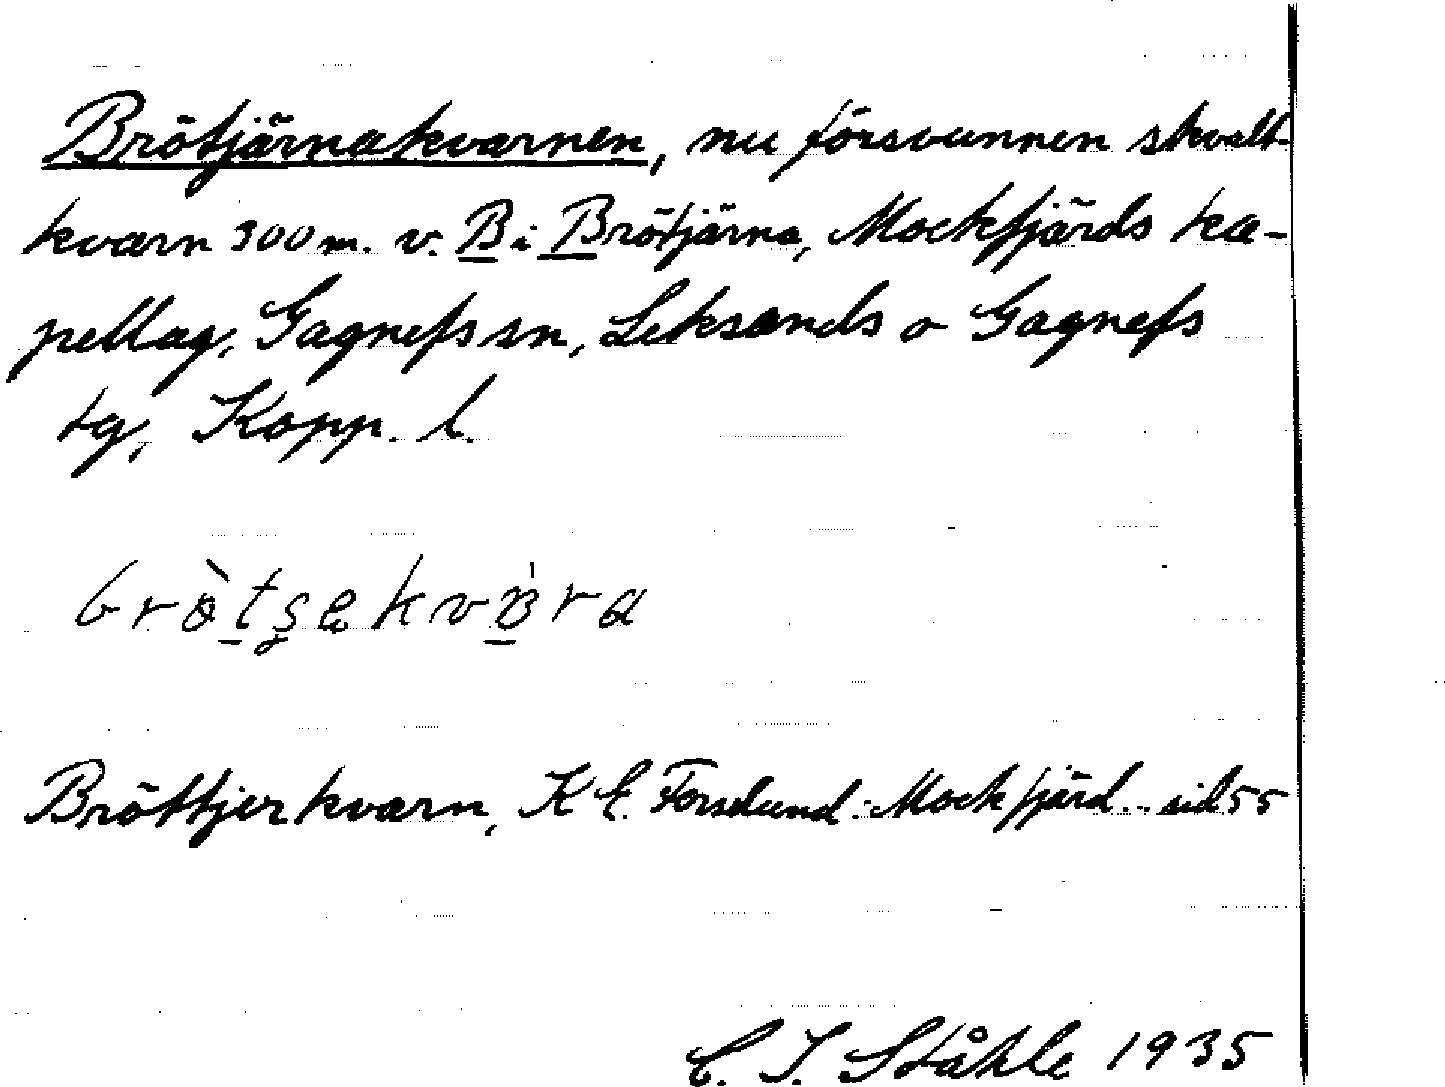 Brötjärnakvarnen, nu försvunnen skvalt-
kvarn 300 m. v. B i Brötjärna, Mockfjärds ka-
pellag, Gagnefs sn, Leksands o Gagnefs
tg, Kopp. l.
Bröttjer kvarn, K E. Forslund: Mockfjärd... sid 55
C. I. Ståhle 1935